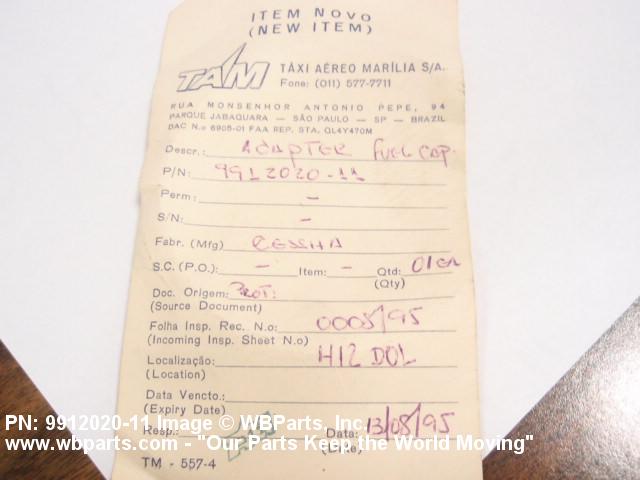 ITEM NOVO
(NEW ITEM)
TAM
TÁXI AÉREO MARÍLIA S/A.
Fone: (011) 577-7711
RUA MONSENHOR ANTONIO PEPE, 94
PARQUE JABAQUARA — SÃO PAULO — SP — BRAZIL
DAC N.o 6905-01 FAA REP. STA. QL4Y470M
Descr.: ADAPTER FUEL CAP.
P/N: 9912020-11
Perm: -
S/N: -
Fabr. (Mfg) CESSNA
S.C. (P.O.): - Item: - Qtd: 01 EA
(Qty)
Doc. Origem: PROT:
(Source Document)
Folha Insp. Rec. N.o: 0005/95
(Incoming Insp. Sheet N.o)
Localização: H12 DOL
(Location)
Data Vencto.:
(Expiry Date)
PN: 9912020-11 Image © WBParts, Inc.
Resp.: Data: 13/08/95
www.wbparts.com - "Our Parts Keep the World Moving"
(Date)
TM - 557-4